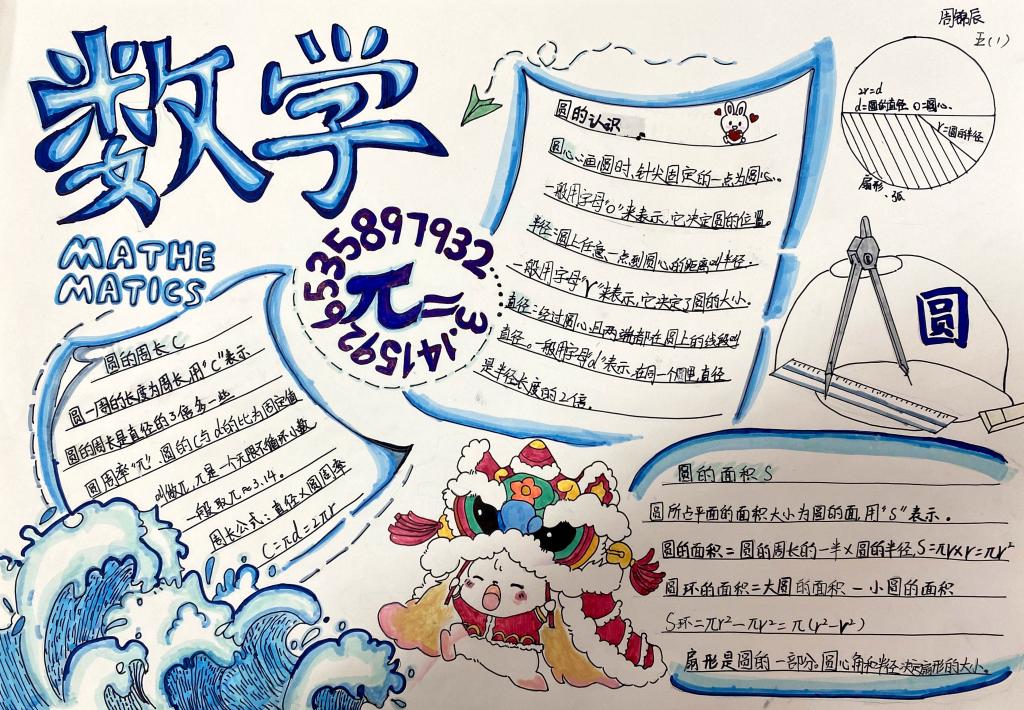 周锦辰
五(1)
数学
MATHE
MATICS
π=3.1415926535897932
圆的认识
圆心:画圆时,针尖固定的一点为圆心。
一般用字母"O"来表示,它决定圆的位置。
半径:圆上任意一点到圆心的距离叫半径.
一般用字母"r"来表示,它决定了圆的大小.
直径:经过圆心且两端都在圆上的线段叫
直径。一般用字母"d"表示,在同一个圆里,直径
是半径长度的2倍.
2r=d
d=圆的直径 O=圆心.
r=圆的半径
扇形
弧
圆
圆的周长 C
圆一周的长度为周长,用"C"表示
圆的周长是直径的3倍多一些
圆周率"π":圆的C与d的比为固定值
叫做π,π是一个无限不循环小数
一般取π≈3.14.
周长公式:直径×圆周率
C=πd=2πr
圆的面积 S
圆所占平面的面积大小为圆的面,用"S"表示.
圆的面积=圆的周长的一半×圆的半径,S=πr×r=πr²
圆环的面积=大圆的面积-小圆的面积
S环=πr²-πr²=π(r²-r²)
扇形是圆的一部分,圆心角和半径决定扇形的大小.